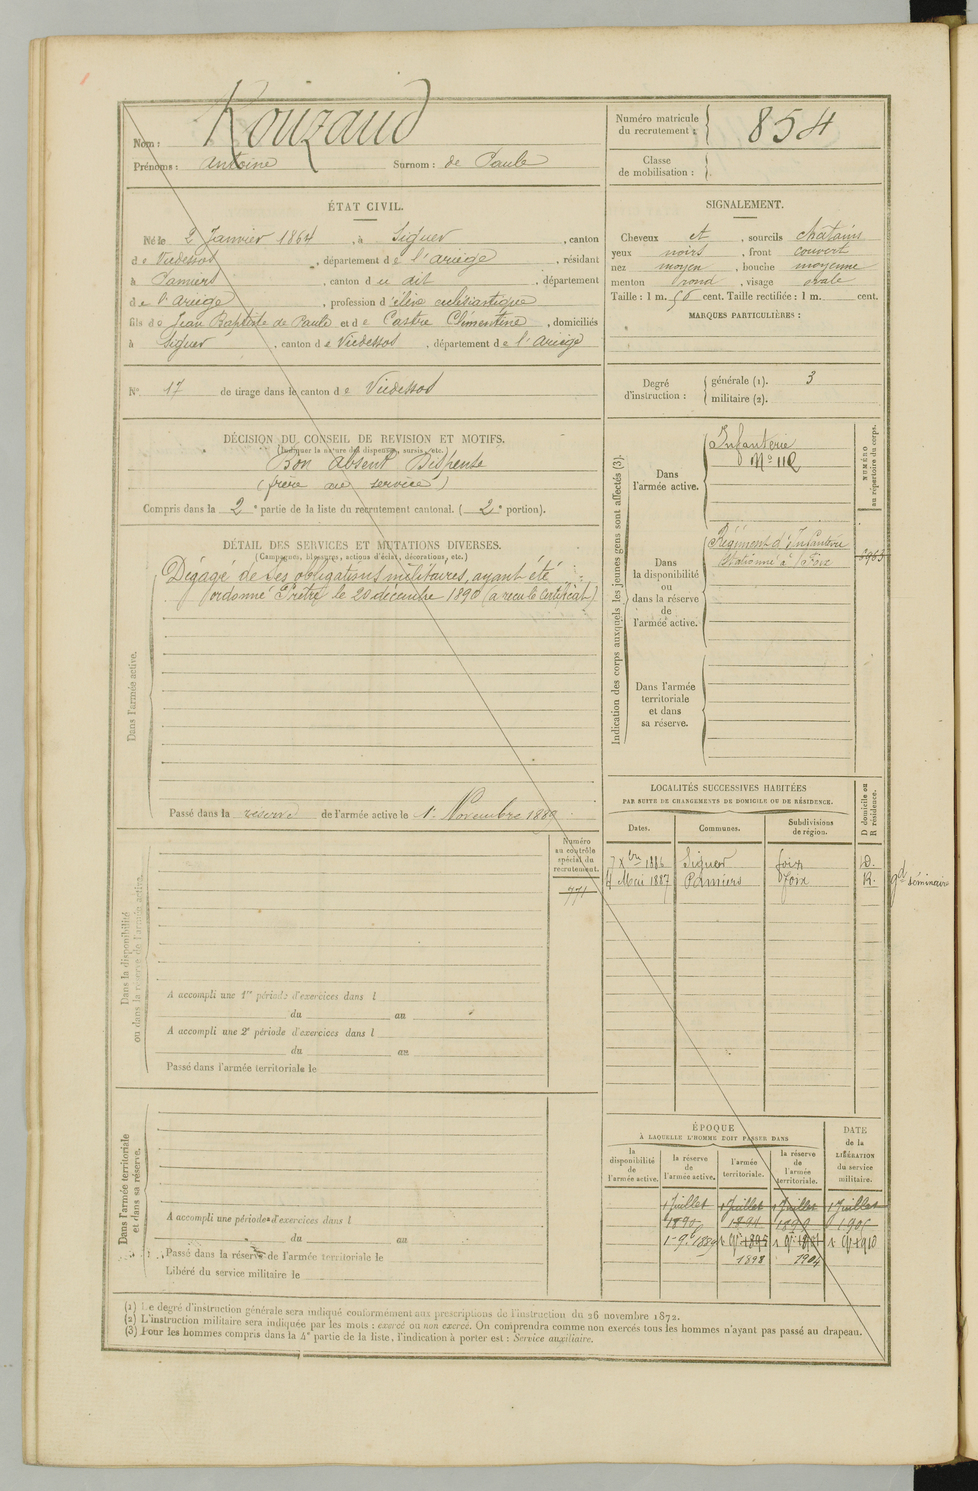 Nom : Rouzaud
Prénoms : Antoine Surnom : de Paule
Numéro matricule
du recrutement : 854
Classe
de mobilisation :
ÉTAT CIVIL.
Né le 2 Janvier 1864, à Siguer, canton
de Vicdessos, département de l'ariège, résidant
à Pamiers, canton du dit, département
de l'ariège, profession d'élève eclésiastique
fils de Jean Baptiste de Paule et de Castre Clémentine, domiciliés
à Siguer, canton de Vicdessos, département de l'ariège
N° 17 de tirage dans le canton de Vicdessos
DÉCISION DU CONSEIL DE REVISION ET MOTIFS.
(Indiquer la nature des dispenses, sursis, etc.)
Bon absent Dispensé
(frère au service)
Compris dans la 2e partie de la liste du recrutement cantonal. (2e portion).
DÉTAIL DES SERVICES ET MUTATIONS DIVERSES.
(Campagnes, blessures, actions d'éclat, décorations, etc.)
Dégagé de ses obligations militaires, ayant été
ordonné Prêtre le 20 décembre 1890 (a reçu le certificat)
Dans l'armée active.
Passé dans la réserve de l'armée active le 1er Novembre 1889
Numéro
au contrôle
spécial du
recrutement.
771
Dans la disponibilité
ou dans la réserve de l'armée active.
A accompli une 1re période d'exercices dans l
du au
A accompli une 2e période d'exercices dans l
du au
Passé dans l'armée territoriale le
Dans l'armée territoriale
et dans sa réserve.
A accompli une période d'exercices dans l
du au
Passé dans la réserve de l'armée territoriale le
Libéré du service militaire le
SIGNALEMENT.
Cheveux et, sourcils chatains
yeux noirs, front couvert
nez moyen, bouche moyenne
menton rond, visage ovale
Taille : 1 m. cent. Taille rectifiée : 1 m. cent.
MARQUES PARTICULIÈRES :
Degré
d'instruction :
générale (1). 3
militaire (2).
Indication des corps auxquels les jeunes gens sont affectés (3).
Dans
l'armée active.
Infanterie
NUMÉRO
au répertoire du corps.
Dans
la disponibilité
ou
dans la réserve
de
l'armée active.
Régiment d'Infanterie
Stationné à Foix
Dans l'armée
territoriale
et dans
sa réserve.
LOCALITÉS SUCCESSIVES HABITÉES
PAR SUITE DE CHANGEMENTS DE DOMICILE OU DE RÉSIDENCE.
Dates. Communes. Subdivisions
de région. D domicile ou
R résidence.
7 Xbre 1886 Siguer foix D.
4 Mai 1887 Pamiers foix R. gd séminaire
ÉPOQUE
À LAQUELLE L'HOMME DOIT PASSER DANS
la
disponibilité
de
l'armée active.
la réserve
de
l'armée active.
l'armée
territoriale.
la réserve
de
l'armée
territoriale.
DATE
de la
LIBÉRATION
du service
militaire.
1 Juillet 1 Juillet 1 Juillet 1 Juillet
1898 1904
(1) Le degré d'instruction générale sera indiqué conformément aux prescriptions de l'instruction du 26 novembre 1872.
(2) L'instruction militaire sera indiquée par les mots : exercé ou non exercé. On comprendra comme non exercés tous les hommes n'ayant pas passé au drapeau.
(3) Pour les hommes compris dans la 4e partie de la liste, l'indication à porter est : Service auxiliaire.